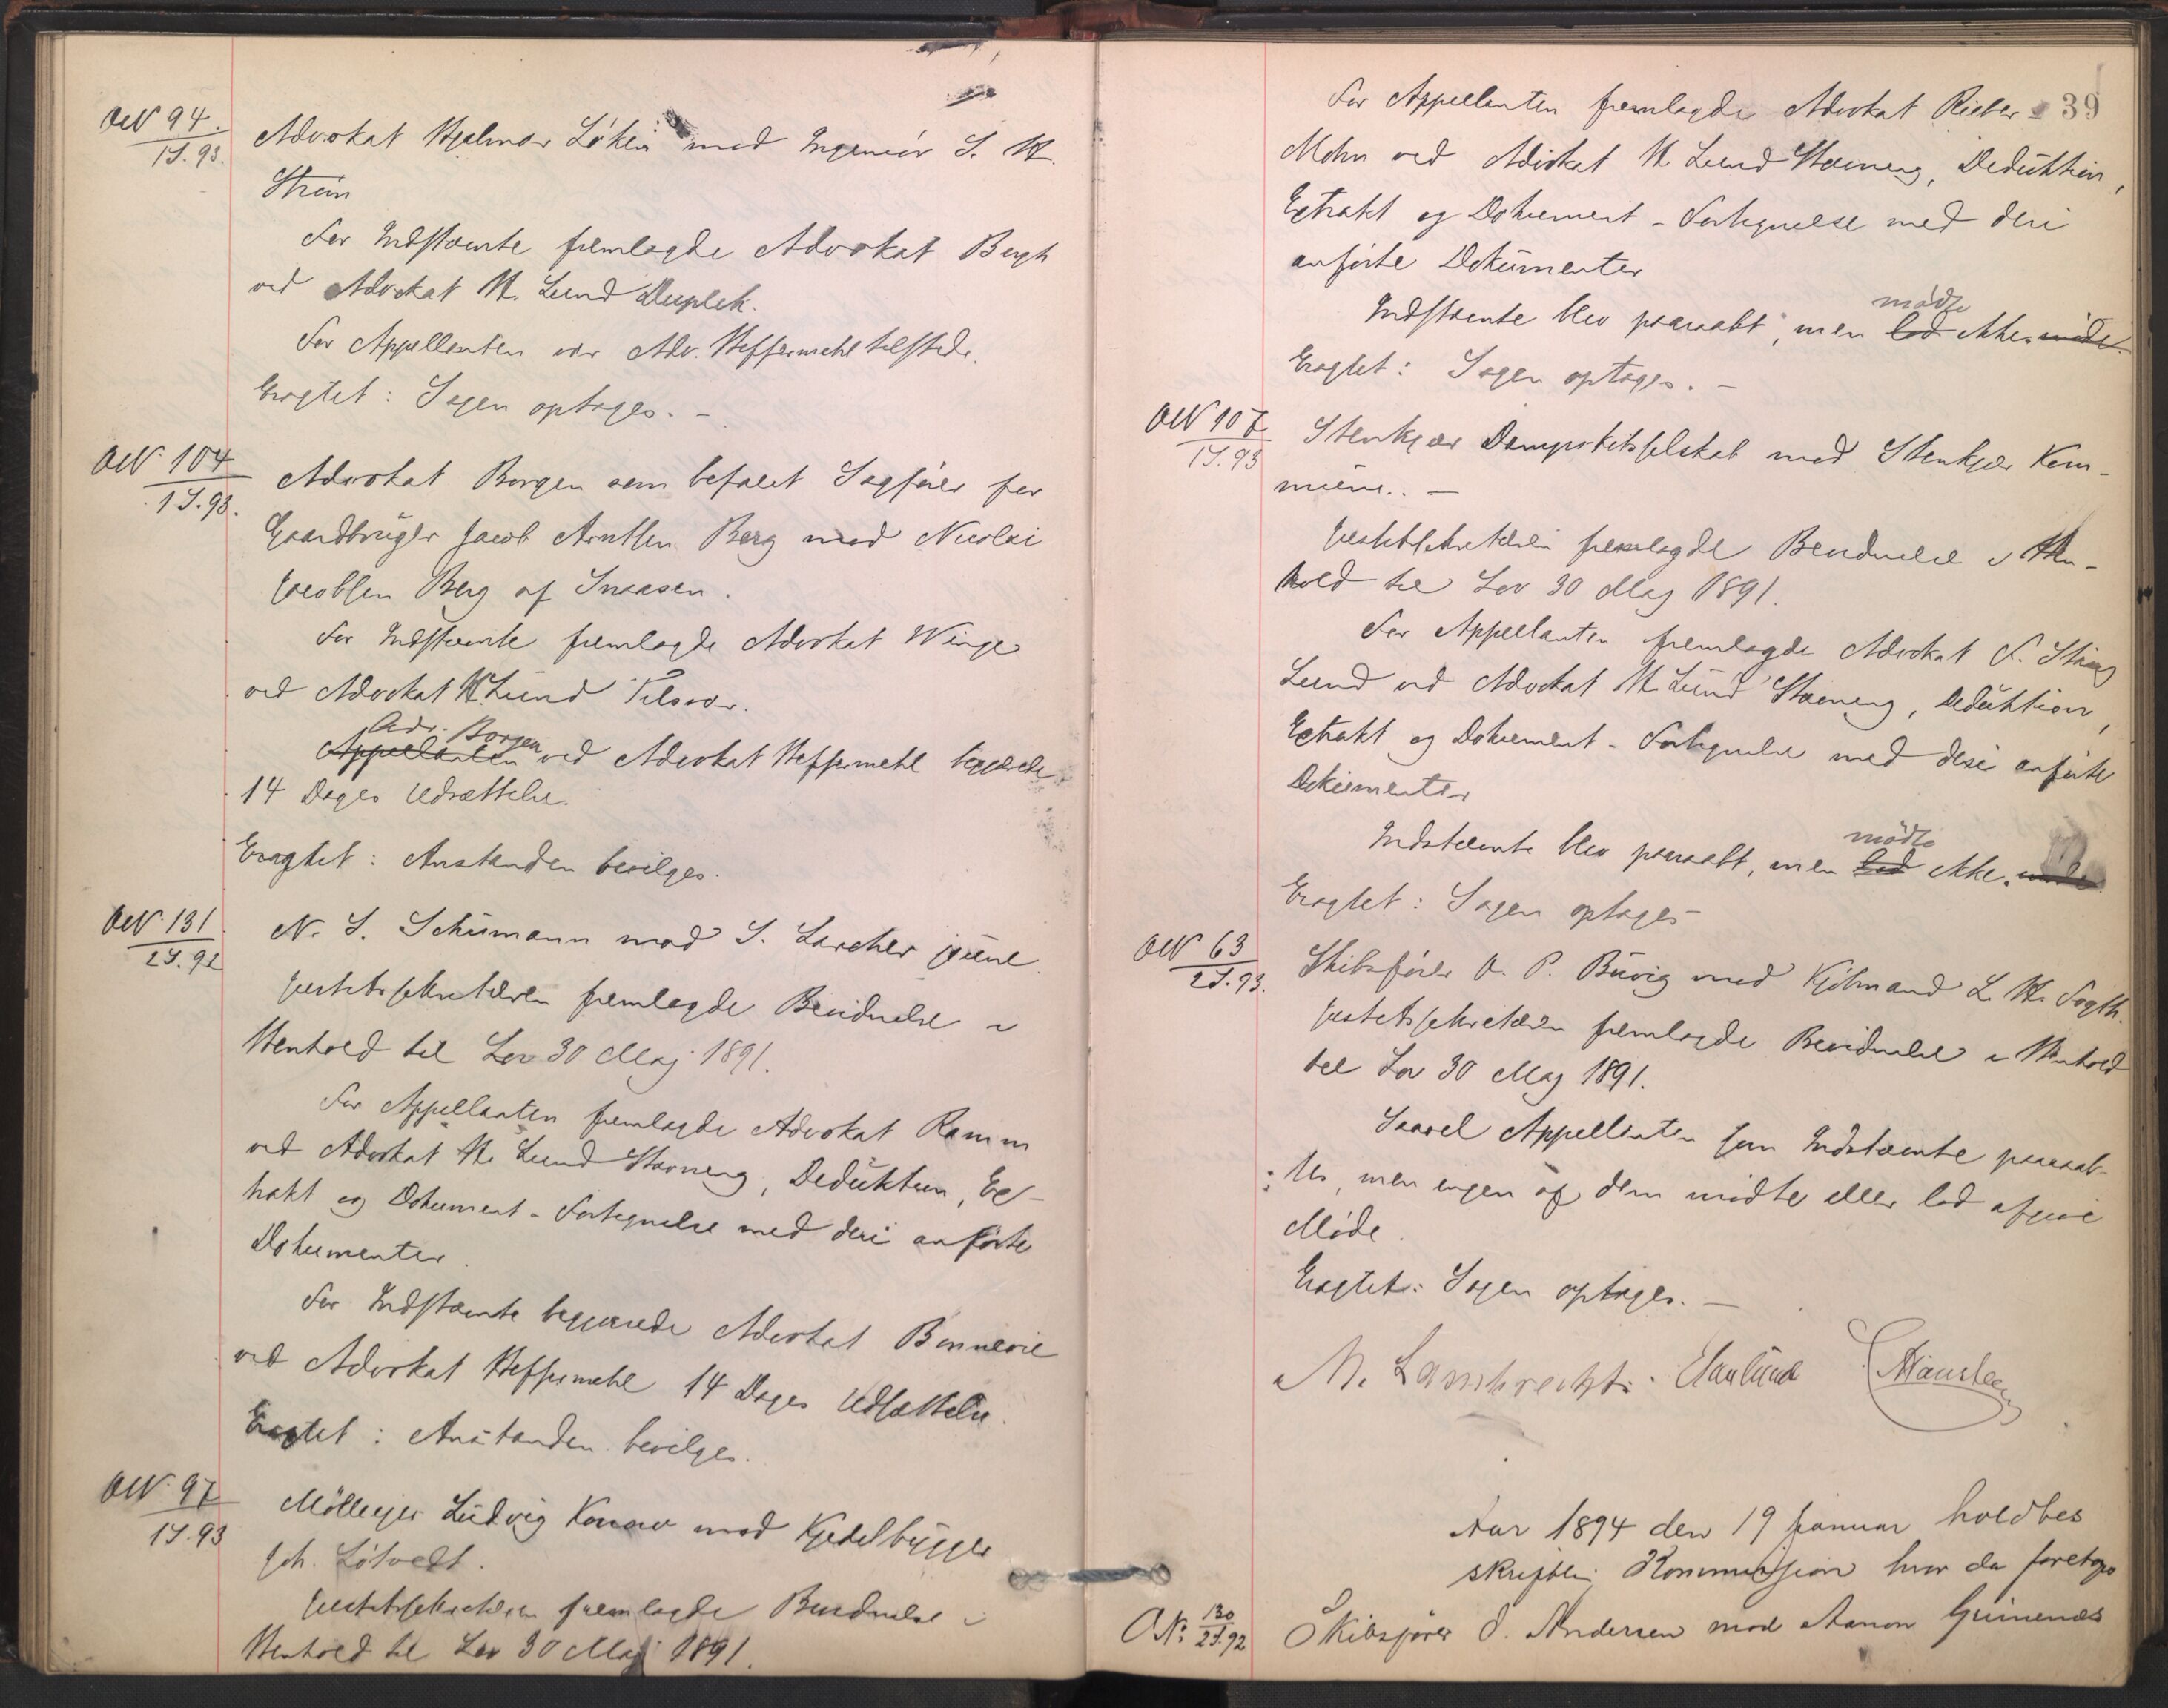 O N 94.
1 S. 93.
Advokat Hjalmar Løken mod Ingeniør S. H.
Strøm
For Indstævnte fremlagde Advokat Bergh
ved Advokat H. Lund Duplik.
For Appellanten var Adv. Heffermehl tilstede.
Eragtet: Sagen optages. -
O N 104
1 S. 93.
Advokat Borgen som befalet Sagfører for
Gaardbruger Jacob Arntsen Berg mod Nicolai
Jacobsen Berg af Snaasen.
For Indstævnte fremlagde Advokat Winge
ved Advokat H. Lund Tilsvar.
Adv. Borgen
Appellanten ved Advokat Heffermehl begjærede
14 Dages Udsættelse.
Eragtet: Anstanden bevilges.
O N 131
2 S. 92
N. S. Schumann mod S. Larcher june.
Justitssekretæren fremlagde Bevidnelse i
Henhold til Lov 30 Maj 1891.
For Appellanten fremlagde Advokat Ramm
ved Advokat H. Lund Stævning, Deduktion, Ex-
trakt og Dokument-Fortegnelse med deri anførte
Dokumenter.
For Indstævnte begjærede Advokat Bonnevie
ved Advokat Heffermehl 14 Dages Udsættelse.
Eragtet: Anstanden bevilges.
O N 97
1 S. 93
Mölleejer Ludvig Konow mod Kjedelbygger
Joh. Løtvedt.
Justitssekretæren fremlagde Bevidnelse i
Henhold til Lov 30 Maj 1891.
39
For Appellanten fremlagde Advokat Rieber-
Mohn ved Advokat H. Lund Stævning, Deduktion,
Extrakt og Dokument-Fortegnelse med deri
anførte Dokumenter
mødte
Indstævnte blev paaraabt, men lod ikke møde.
Eragtet: Sagen optages. -
O N 107
1 S. 93
Stenkjær Dampskibsselskab mod Stenkjær Kom-
mune. -
Justitssekretæren fremlagde Bevidnelse i Hen-
hold til Lov 30 Maj 1891.
For Appellanten fremlagde Advokat F. Stang
Lund ved Advokat H. Lund Stævning, Deduktion,
Extrakt og Dokument-Fortegnelse med deri anførte
Dokumenter
mødte
Indstævnte blev paaraabt, men lod ikke møde
Eragtet: Sagen optages
O N 63
2 S. 93.
Skibsfører O. P. Buvig mod Kjøbmand L. H. Fogth.
Justitssekretæren fremlagde Bevidnelse i Henhold
til Lov 30 Maj 1891.
Saavel Appellanten som Indstævnte paaraab-
tes, men ingen af dem mødte eller lod afgive
Møde.
Eragtet: Sagen optages. -
M. Lambrechts.
Aar 1894 den 19 Januar holdtes
skriftlig Kommission hvor da foretoges
O N: 130
2 S. 92
Skibsfører O. Andersen mod Aanon Grimenes